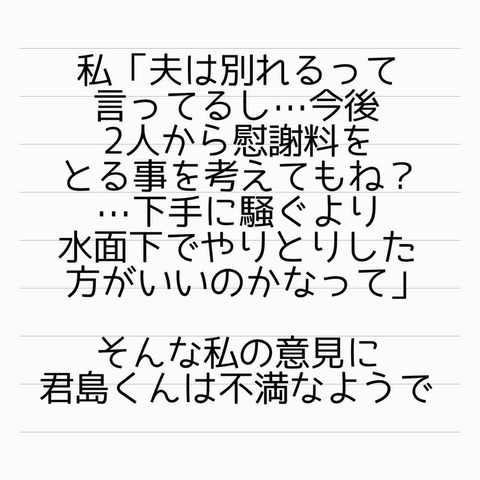 私「夫は別れるって
言ってるし…今後
2人から慰謝料を
とる事を考えてもね？
…下手に騒ぐより
水面下でやりとりした
方がいいのかなって」
そんな私の意見に
君島くんは不満なようで